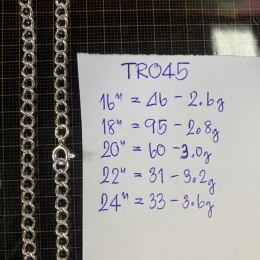 TR045
16" = 46 - 2.6g
18" = 95 - 2.8g
20" = 60 - 3.0g
22" = 31 - 3.2g
24" = 33 - 3.6g